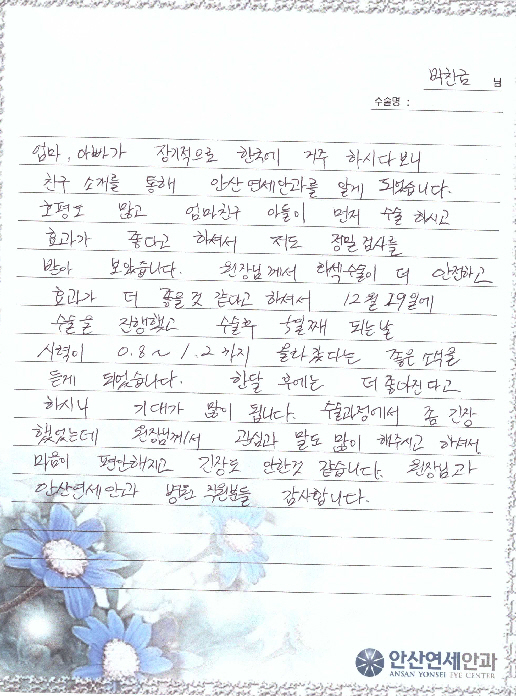 박찬금 님
수술명 :
엄마, 아빠가 장기적으로 한국에 거주 하시다보니
친구 소개를 통해 안산연세안과를 알게 되었습니다.
호평도 많고 엄마친구 아들이 먼저 수술 하시고
효과가 좋다고 하셔서 저도 정밀검사를
받아 보았습니다. 원장님께서 라섹수술이 더 안전하고
효과가 더 좋을것 같다고 하셔서 12월 29일에
수술을 진행했고 수술후 되는날
시력이 0.8~1.2까지 올라갔다는 좋은 소식을
듣게 되었습니다. 한달 후에는 더 좋아진다고
하시니 기대가 많이 됩니다. 수술과정에서 좀 긴장
했었는데 원장님께서 관심과 말도 많이 해주시고 하셔서
마음이 편안해지고 긴장도 안한것 같습니다. 원장님과
안산연세안과 병원 직원분들 감사합니다.
안산연세안과
ANSAN YONSEI EYE CENTER